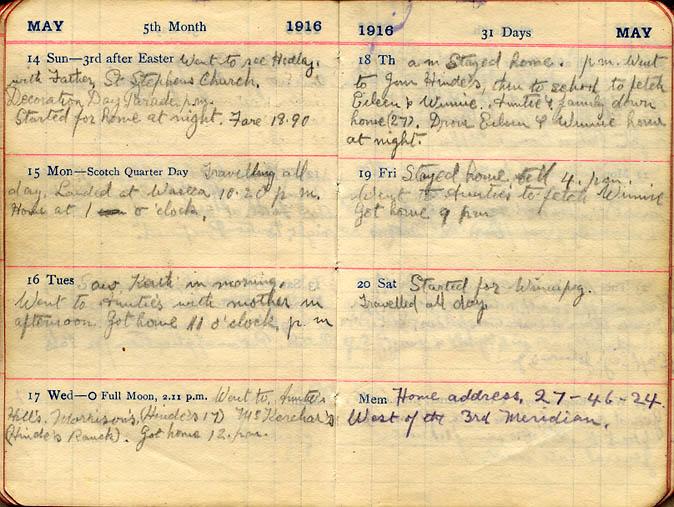 MAY 5th Month 1916
14 Sun—3rd after Easter Went to see Hedley
with Father, St Stephens Church.
Decoration Day Parade, p.m.
Started for home at night. Fare 18.90
15 Mon—Scotch Quarter Day Travelling all
day. Landed at Waseca 10.20 p.m.
Home at 1 o'clock.
16 Tues Saw Keith in morning.
Went to Aunties with mother in
afternoon. Got home 11 o'clock, p.m
17 Wed—O Full Moon, 2.11 p.m. Went to Aunties
Hill's, Morrison's, (Hinde's 17) McKerchar's
(Hinde's Ranch). Got home 12. p.m.
1916 31 Days MAY
18 Th a m Stayed home. p.m. Went
to Hinde's, then to school to fetch
Eileen & Winnie. Auntie & family down
home (27). Drove Eileen & Winnie home
at night.
19 Fri Stayed home till 4. p.m.
Went to Aunties to fetch Winnie
Got home 9 p.m
20 Sat Started for Winnipeg.
Travelled all day.
Mem Home address, 27-46-24.
West of the 3rd Meridian.